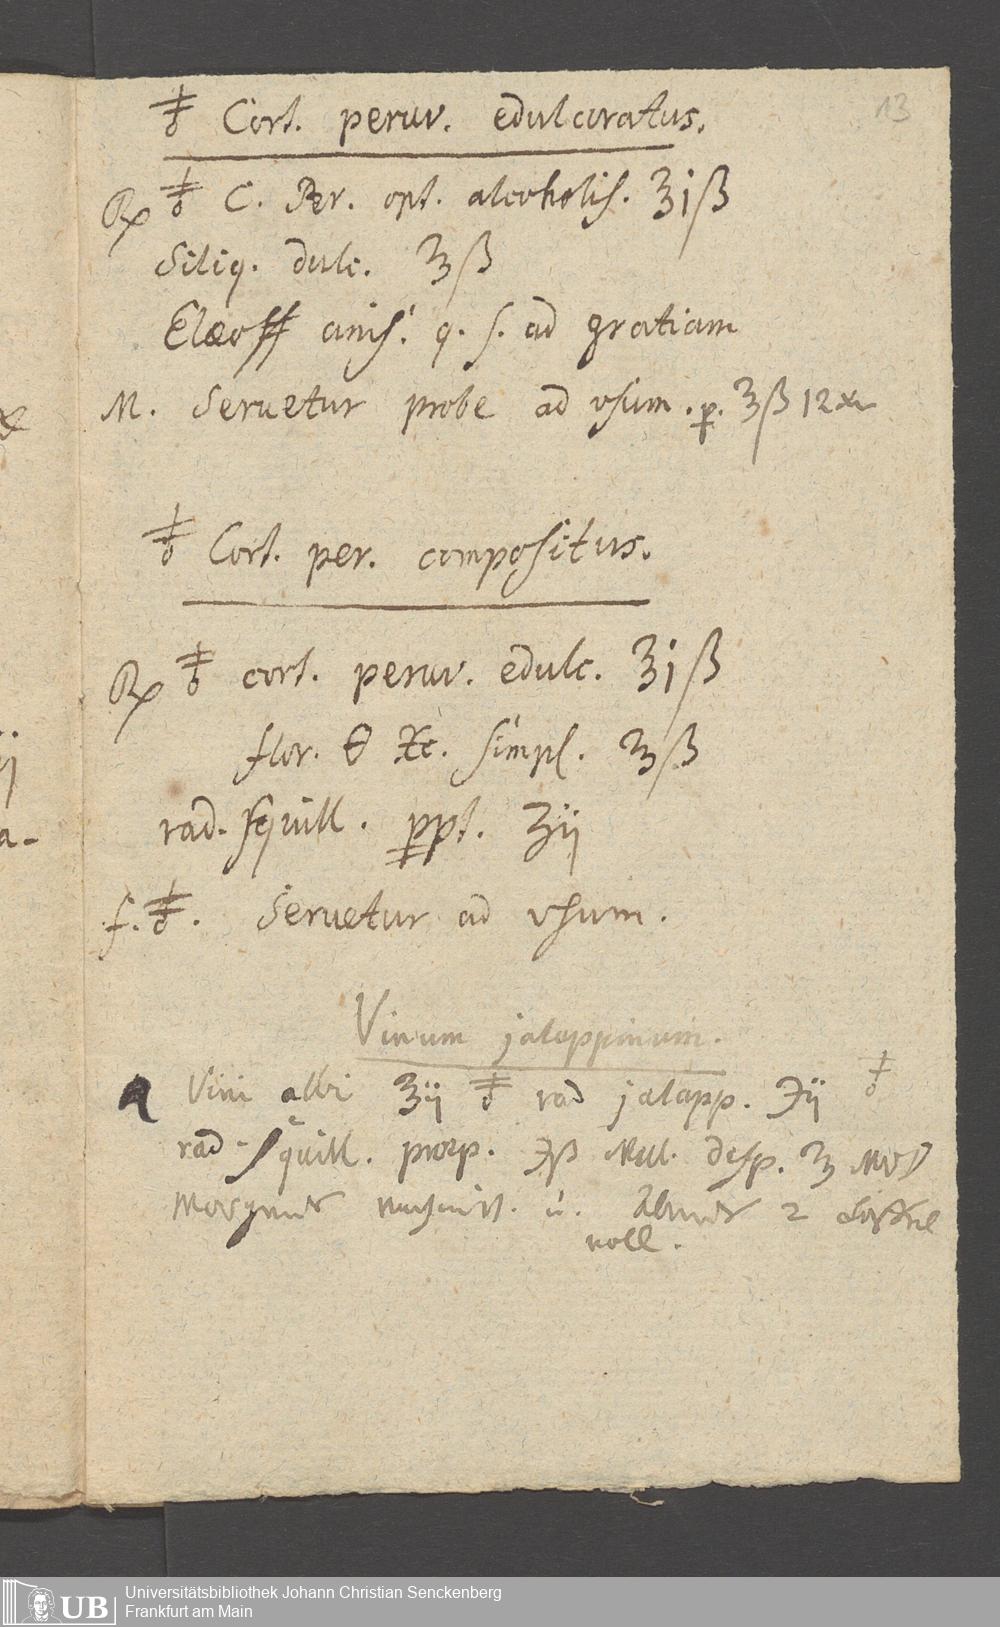 13
♁ Cort. peruv. edulcoratus.
℞ ♁ C. Per. opt. alcoholiſ. ℥jß
Siliq. dulc. ℥ß
Elæoſſ aniſ. q. ſ. ad gratiam
M. Seruetur probe ad vſum. p. ℥ß 12 xr
♁ Cort. per. compositus.
℞ ♁ cort. peruv. edulc. ℥jß
flor. simpl. ʒß
rad. ſquill. ppt. ʒij
f. ♁. Seruetur ad vſum.
Vinum jalappinum.
Vini albi ℥ij ♁ rad jalapp. ℈ij ♁
rad. ſquill. præp. ℈ß Mell. deſp. ʒ MDS
Morgens u. Abends 2 Löffel
voll.
UB
Universitätsbibliothek Johann Christian Senckenberg
Frankfurt am Main